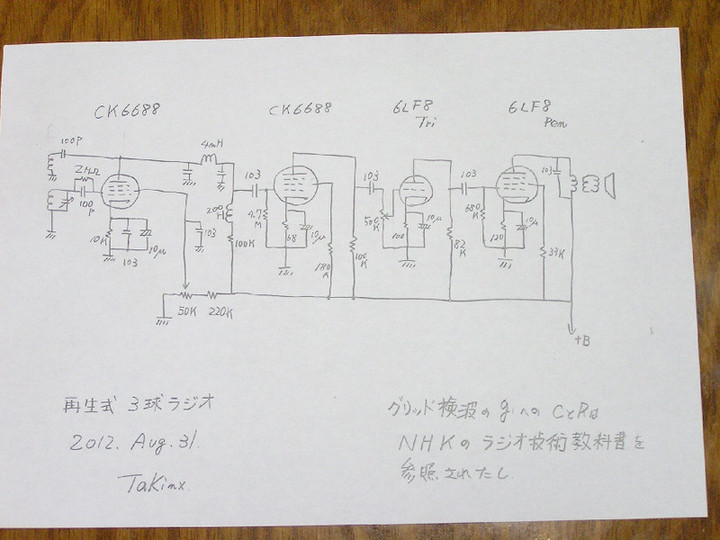 CK6688 CK6688 6LF8 6LF8
Tri Pen
100P
4mH
2MΩ
103 103 103 103
100
P
200
H
4.7
M
500K
680
K
10K
10μ
103
103
100K
68
10μ
180
K
100
K
100
10μ
82
K
120
10μ
33K
50K 220K
+B
再生式 3球ラジオ
2012. Aug. 31.
TaKimx
グリッド検波のg₁へのCとRは
NHKのラジオ技術教科書を
参照されたし